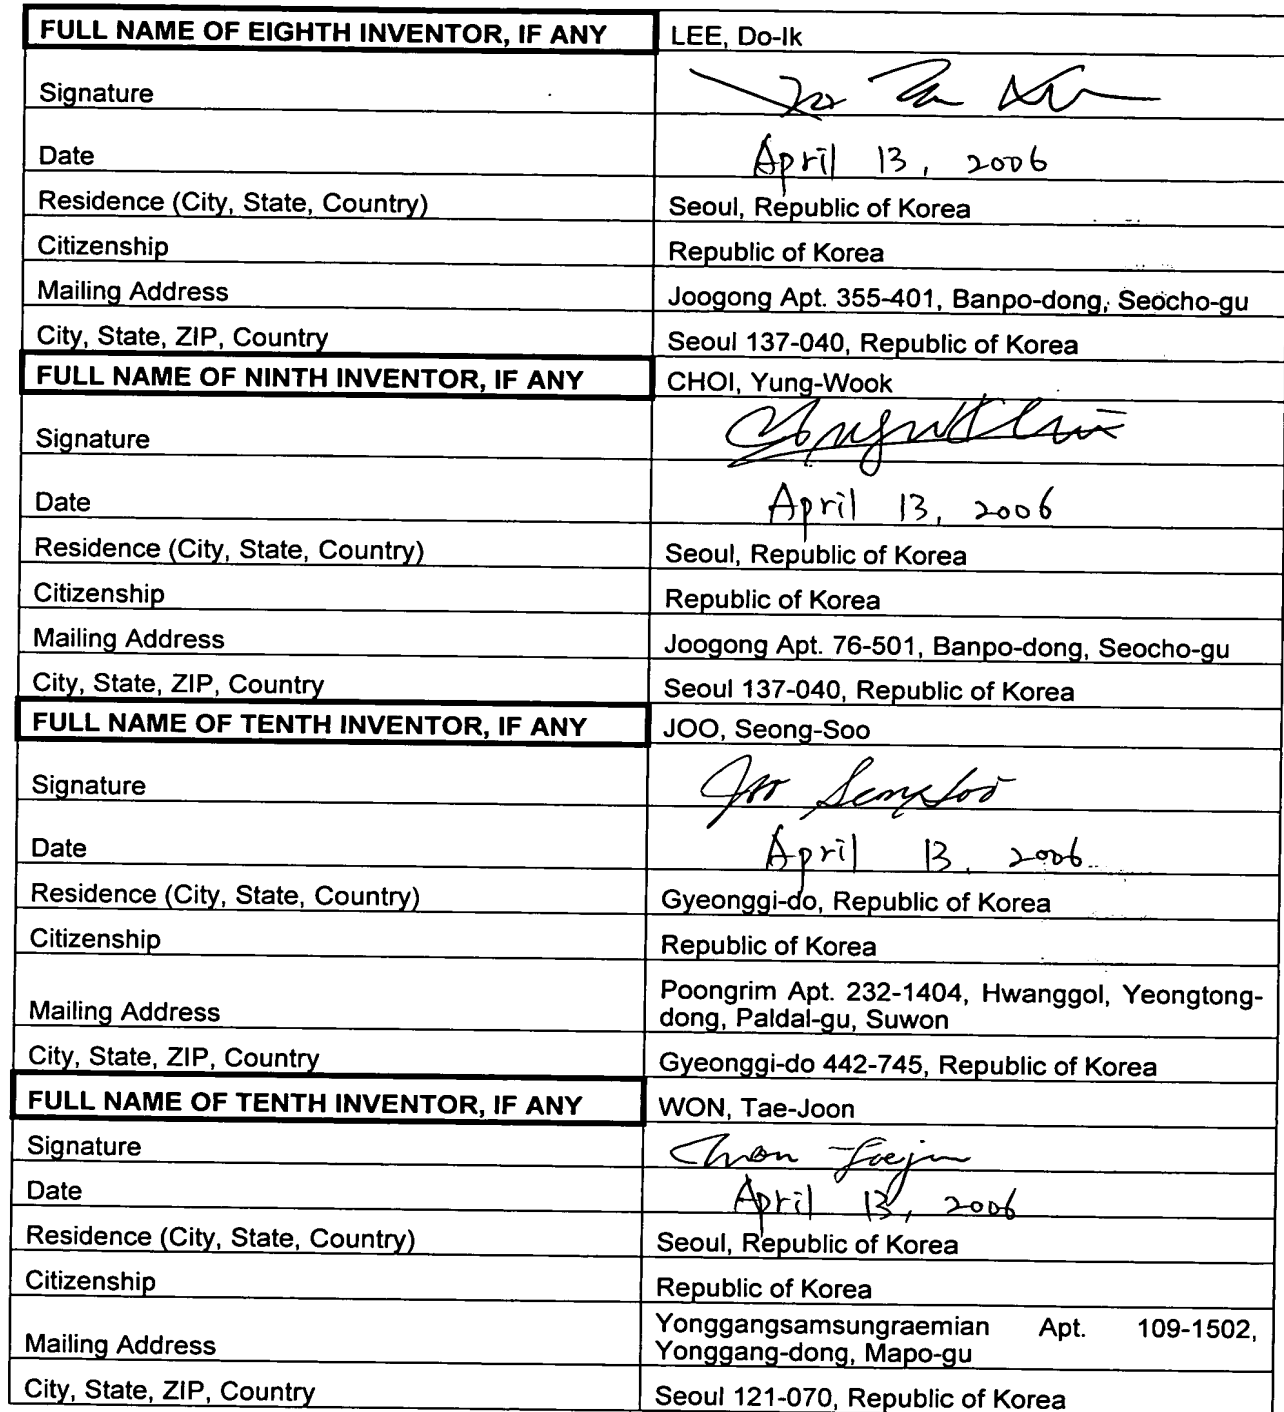 FULL NAME OF EIGHTH INVENTOR, IF ANY LEE, Do-Ik
Signature
Date April 13, 2006
Residence (City, State, Country) Seoul, Republic of Korea
Citizenship Republic of Korea
Mailing Address Joogong Apt. 355-401, Banpo-dong, Seocho-gu
City, State, ZIP, Country Seoul 137-040, Republic of Korea
FULL NAME OF NINTH INVENTOR, IF ANY CHOI, Yung-Wook
Signature
Date April 13, 2006
Residence (City, State, Country) Seoul, Republic of Korea
Citizenship Republic of Korea
Mailing Address Joogong Apt. 76-501, Banpo-dong, Seocho-gu
City, State, ZIP, Country Seoul 137-040, Republic of Korea
FULL NAME OF TENTH INVENTOR, IF ANY JOO, Seong-Soo
Signature
Date April 13, 2006
Residence (City, State, Country) Gyeonggi-do, Republic of Korea
Citizenship Republic of Korea
Mailing Address Poongrim Apt. 232-1404, Hwanggol, Yeongtong-
dong, Paldal-gu, Suwon
City, State, ZIP, Country Gyeonggi-do 442-745, Republic of Korea
FULL NAME OF TENTH INVENTOR, IF ANY WON, Tae-Joon
Signature
Date April 13, 2006
Residence (City, State, Country) Seoul, Republic of Korea
Citizenship Republic of Korea
Mailing Address Yonggangsamsungraemian Apt. 109-1502,
Yonggang-dong, Mapo-gu
City, State, ZIP, Country Seoul 121-070, Republic of Korea